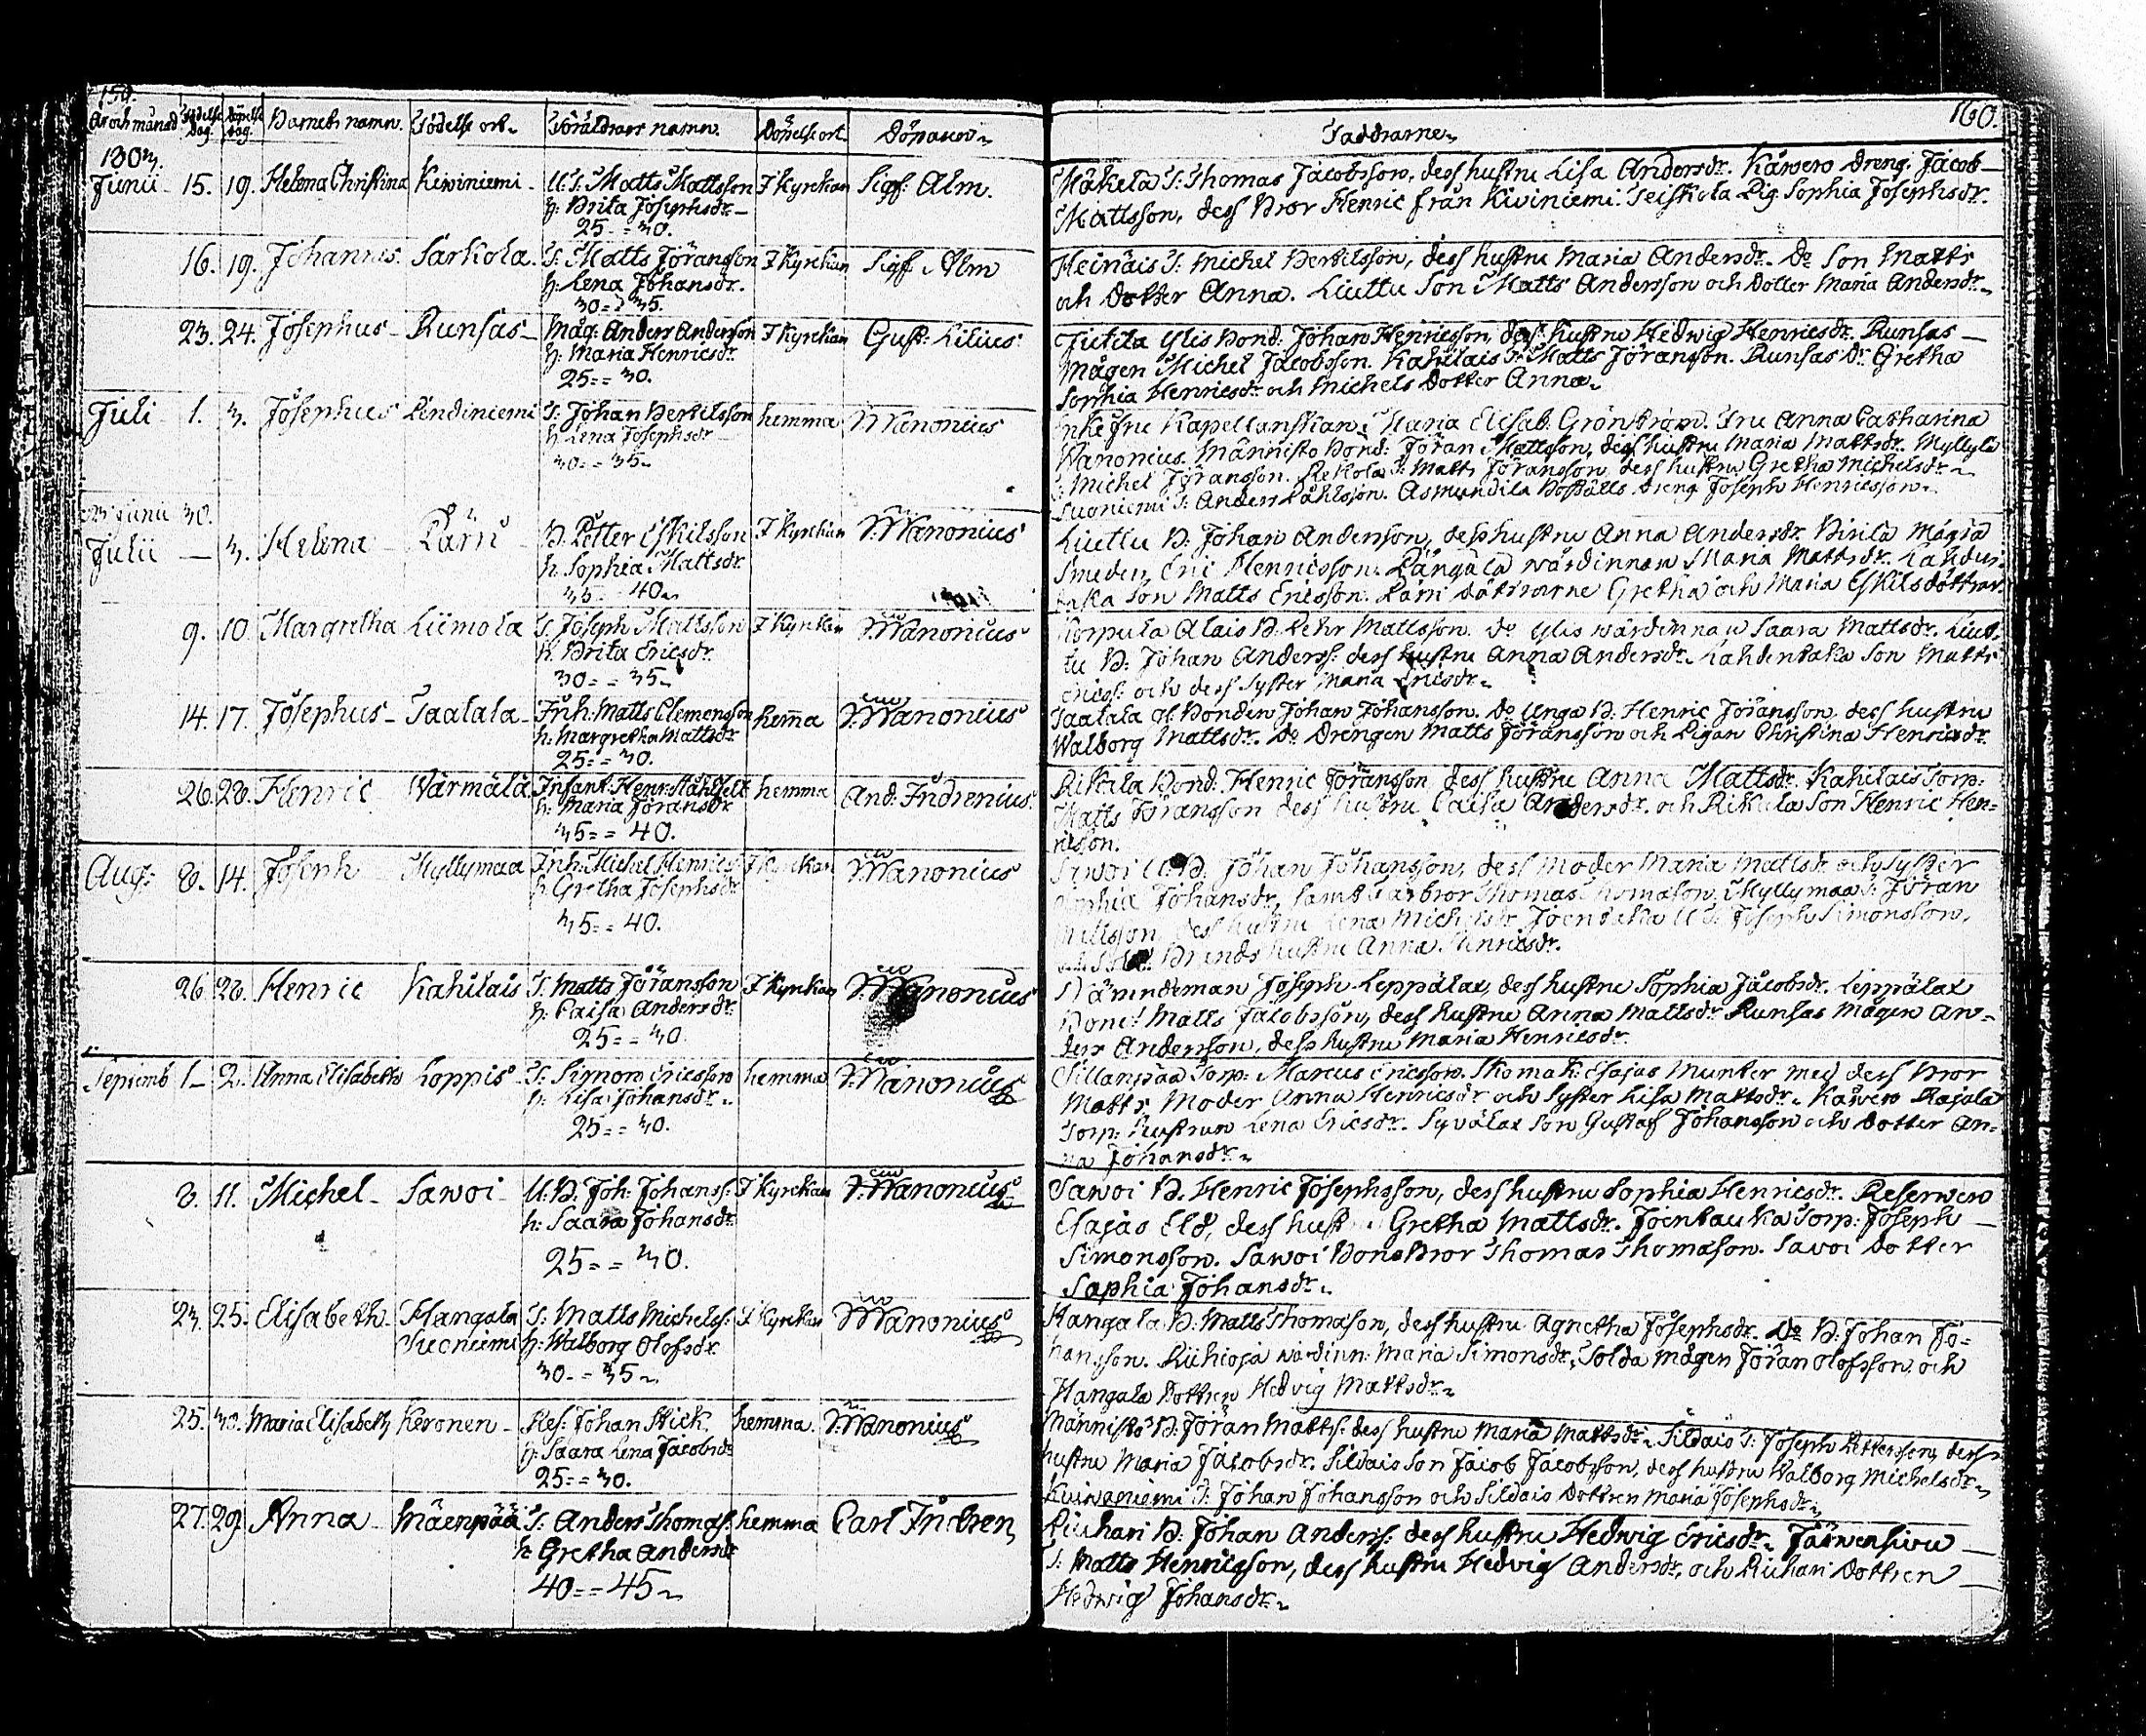 159.
År och månad Födelse dag. Döpelse dag. Barnets namn. Födelse ort. Föräldrars namn. Döpelse ort. Döparen
1803.
Junii 15. 19. Helena Christina Kiviniemi U: T: Matts Mattsson I Kyrckan Sigf: Alm.
h: Brita Josephsdr.
25 = 30.
16. 19. Johannes Sarkola T: Matts Jöransson I Kyrckan Sigf: Alm
h: Lena Johansdr.
30 = 35.
23. 24. Josephus Runsas Måg: Anders Andersson I Kyrckan Gust: Lilius
h: Maria Henricsdr.
25 = 30.
Juli 1. 3. Josephus Lindiniemi T: Johan Bertilsson hemma J: Wanonius
h: Lena Josephsdr
30 = 35
Junii 30.
Julii 3. Helena Pärri B. Petter Eskilsson I Kyrckan J: Wanonius
h: Sophia Mattsdr.
35 = 40
9. 10. Margretha Liimola T: Joseph Mattsson I Kyrckan J: Wanonius
h: Brita Ericsdr.
30 = 35
14. 17. Josephus Taatala Inh: Matts Clemensson hemma J: Wanonius
h: Margretha Mattsdr
25 = 30.
26. 28. Henric Wärmälä Infant: Henr: Stålhjelt hemma And: Indrenius
h: Maria Jöransdr
35 = 40.
Aug: 8. 14. Joseph Myllymaa Inh: Michel Henrics: I Kyrckan J: Wanonius
h: Gretha Josephsdr
35 = 40.
26. 28. Henric Kahilais T: Matts Jöransson I Kyrckan J: Wanonius
h: Caisa Andersdr
25 = 30
Septemb 1 2. Anna Elisabeth Loppis T: Simon Ericsson hemma J: Wanonius
h: Lisa Johansdr.
25 = 30.
8. 11. Michel Sawoi U: B: Joh: Johanss: I Kyrckan J: Wanonius
h: Saara Johansdr
25 = 30.
23. 25. Elisabeth Hangala T: Matts Michelss: I Kyrckan J: Wanonius
Suoniemi h: Walborg Olofsdr.
30 = 35
25. 30. Maria Elisabeth Keronen Res: Johan Stick hemma J: Wanonius
h: Saara Lena Jacobsdr
25 = 30.
27. 29. Anna Mäenpää T: Anders Thomass: hemma Carl Indren
h: Gretha Andersdr
40 = 45
160.
Faddrarne
Mäkelä T: Thomas Jacobsson, dess hustru Lisa Andersdr. Käwero Dreng: Jacob
Mattsson, dess Bror Henric från Kiviniemi. Seiskola Pig: Sophia Josephsdr.
Heinäis T: Michel Bertilsson, dess hustru Maria Andersdr. Do Son Matts
och Dotter Anna. Liuttu Son Matts Andersson och Dotter Maria Andersdr.
Jutila Ylis Bond: Johan Henricsson, dess hustru Hedwig Henricsdr. Runsas
Mågen Michel Jacobsson. Kahilais T: Matts Jöransson. Runsas Dr. Gretha
Sophia Henricsdr och Michels Dotter Anna.
Fru Kapellanskan Maria Elisab. Grönström. Fru Anna Catharina
Wanonius. Männistö Bond: Jöran Mattsson, dess hustru Maria Mattsdr. Myllylä
T: Michel Jöransson. Rekola T: Matts Jöransson, dess hustru Gretha Michelsdr.
Suoniemi T: Anders Påhlsson. Asmundila Dreng Joseph Henricsson.
Liuttu B: Johan Andersson, dess hustru Anna Andersdr.
Smeden Eric Henricsson. Pängälä wärdinnan Maria Mattsdr. Lahden-
taka Son Matts Ericsson. Pärri döttrarne Gretha och Maria Eskilsdöttrar
Korpula Alais B: Pehr Mattsson. Do Ylis wärdinnan Saara Mattsdr. Liut-
tu B: Johan Anderss: dess hustru Anna Andersdr. Lahdentaka Son Matts
Ericss: och dess Syster Maria Ericsdr.
Taatala Bonden Johan Johansson. Do Unga B: Henric Jöransson, dess hustru
Walborg Mattsdr. Do Drengen Matts Jöransson och Pigan Christina Henricsdr
Rikala Bond: Henric Jöransson dess hustru Anna Mattsdr. Kahilais Torp:
Matts Jöransson dess hustru Caisa Andersdr. och Rikala Son Henric Hen-
ricson.
Sawoi U: B: Johan Johansson, dess Moder Maria Mattsdr och Syster
Sophia Johansdr, samt Farbror Thomas Thomason. Myllymaa T: Jöran
Mattsson, dess hustru Lena Michelsdr. Joentaka U: T: Joseph Simonsson,
hustru Anna Henricsdr.
Nämndeman Joseph Leppälax, dess hustru Sophia Jacobsdr. Leppälax
Bond: Matts Jacobsson, dess hustru Anna Mattsdr Runsas Mågen An-
ders Andersson, dess hustru Maria Henricsdr.
Sillanpää Torp: Marcus Ericsson. Esajas Munter med dess Bror
Matts, Moder Anna Henricsdr och Syster Lisa Mattsdr. Käwero Rajala
Torp: hustrun Lena Ericsdr. Syvälax Son Gustaf Johansson och Dotter An-
na Johansdr.
Sawoi B. Henric Josephsson, dess hustru Sophia Henricsdr. Reserwen
Esajas Eld, dess hust Gretha Mattsdr. Joentauka Torp: Joseph
Simonsson. Sawoi Bondbror Thomas Thomason. Savoi Dotter
Sophia Johansdr.
Hangala B: Matts Thomason, dess hustru Agnetha Josephsdr. Do B: Johan Jo-
hansson. Riihioja wärdinn: Maria Simonsdr, Tolda mågen Jöran Olofsson, och
Hangala Dottren Hedvig Mattsdr.
Männistö B: Jöran Mattss: dess hustru Maria Mattsdr. Sildais T: Joseph Pettersson, dess
hustru Maria Jacobsdr. Sildais Son Jacob Jacobsson, dess hustru Walborg Michelsdr.
T: Johan Johansson och Sildais Dottren Maria Josephsdr.
Riuhari B: Johan Anderss: dess hustru Hedwig Ericsdr.
T: Matts Henricsson, dess hustru Hedvig Andersdr, och Riuhari Dottren
Hedwig Johansdr.